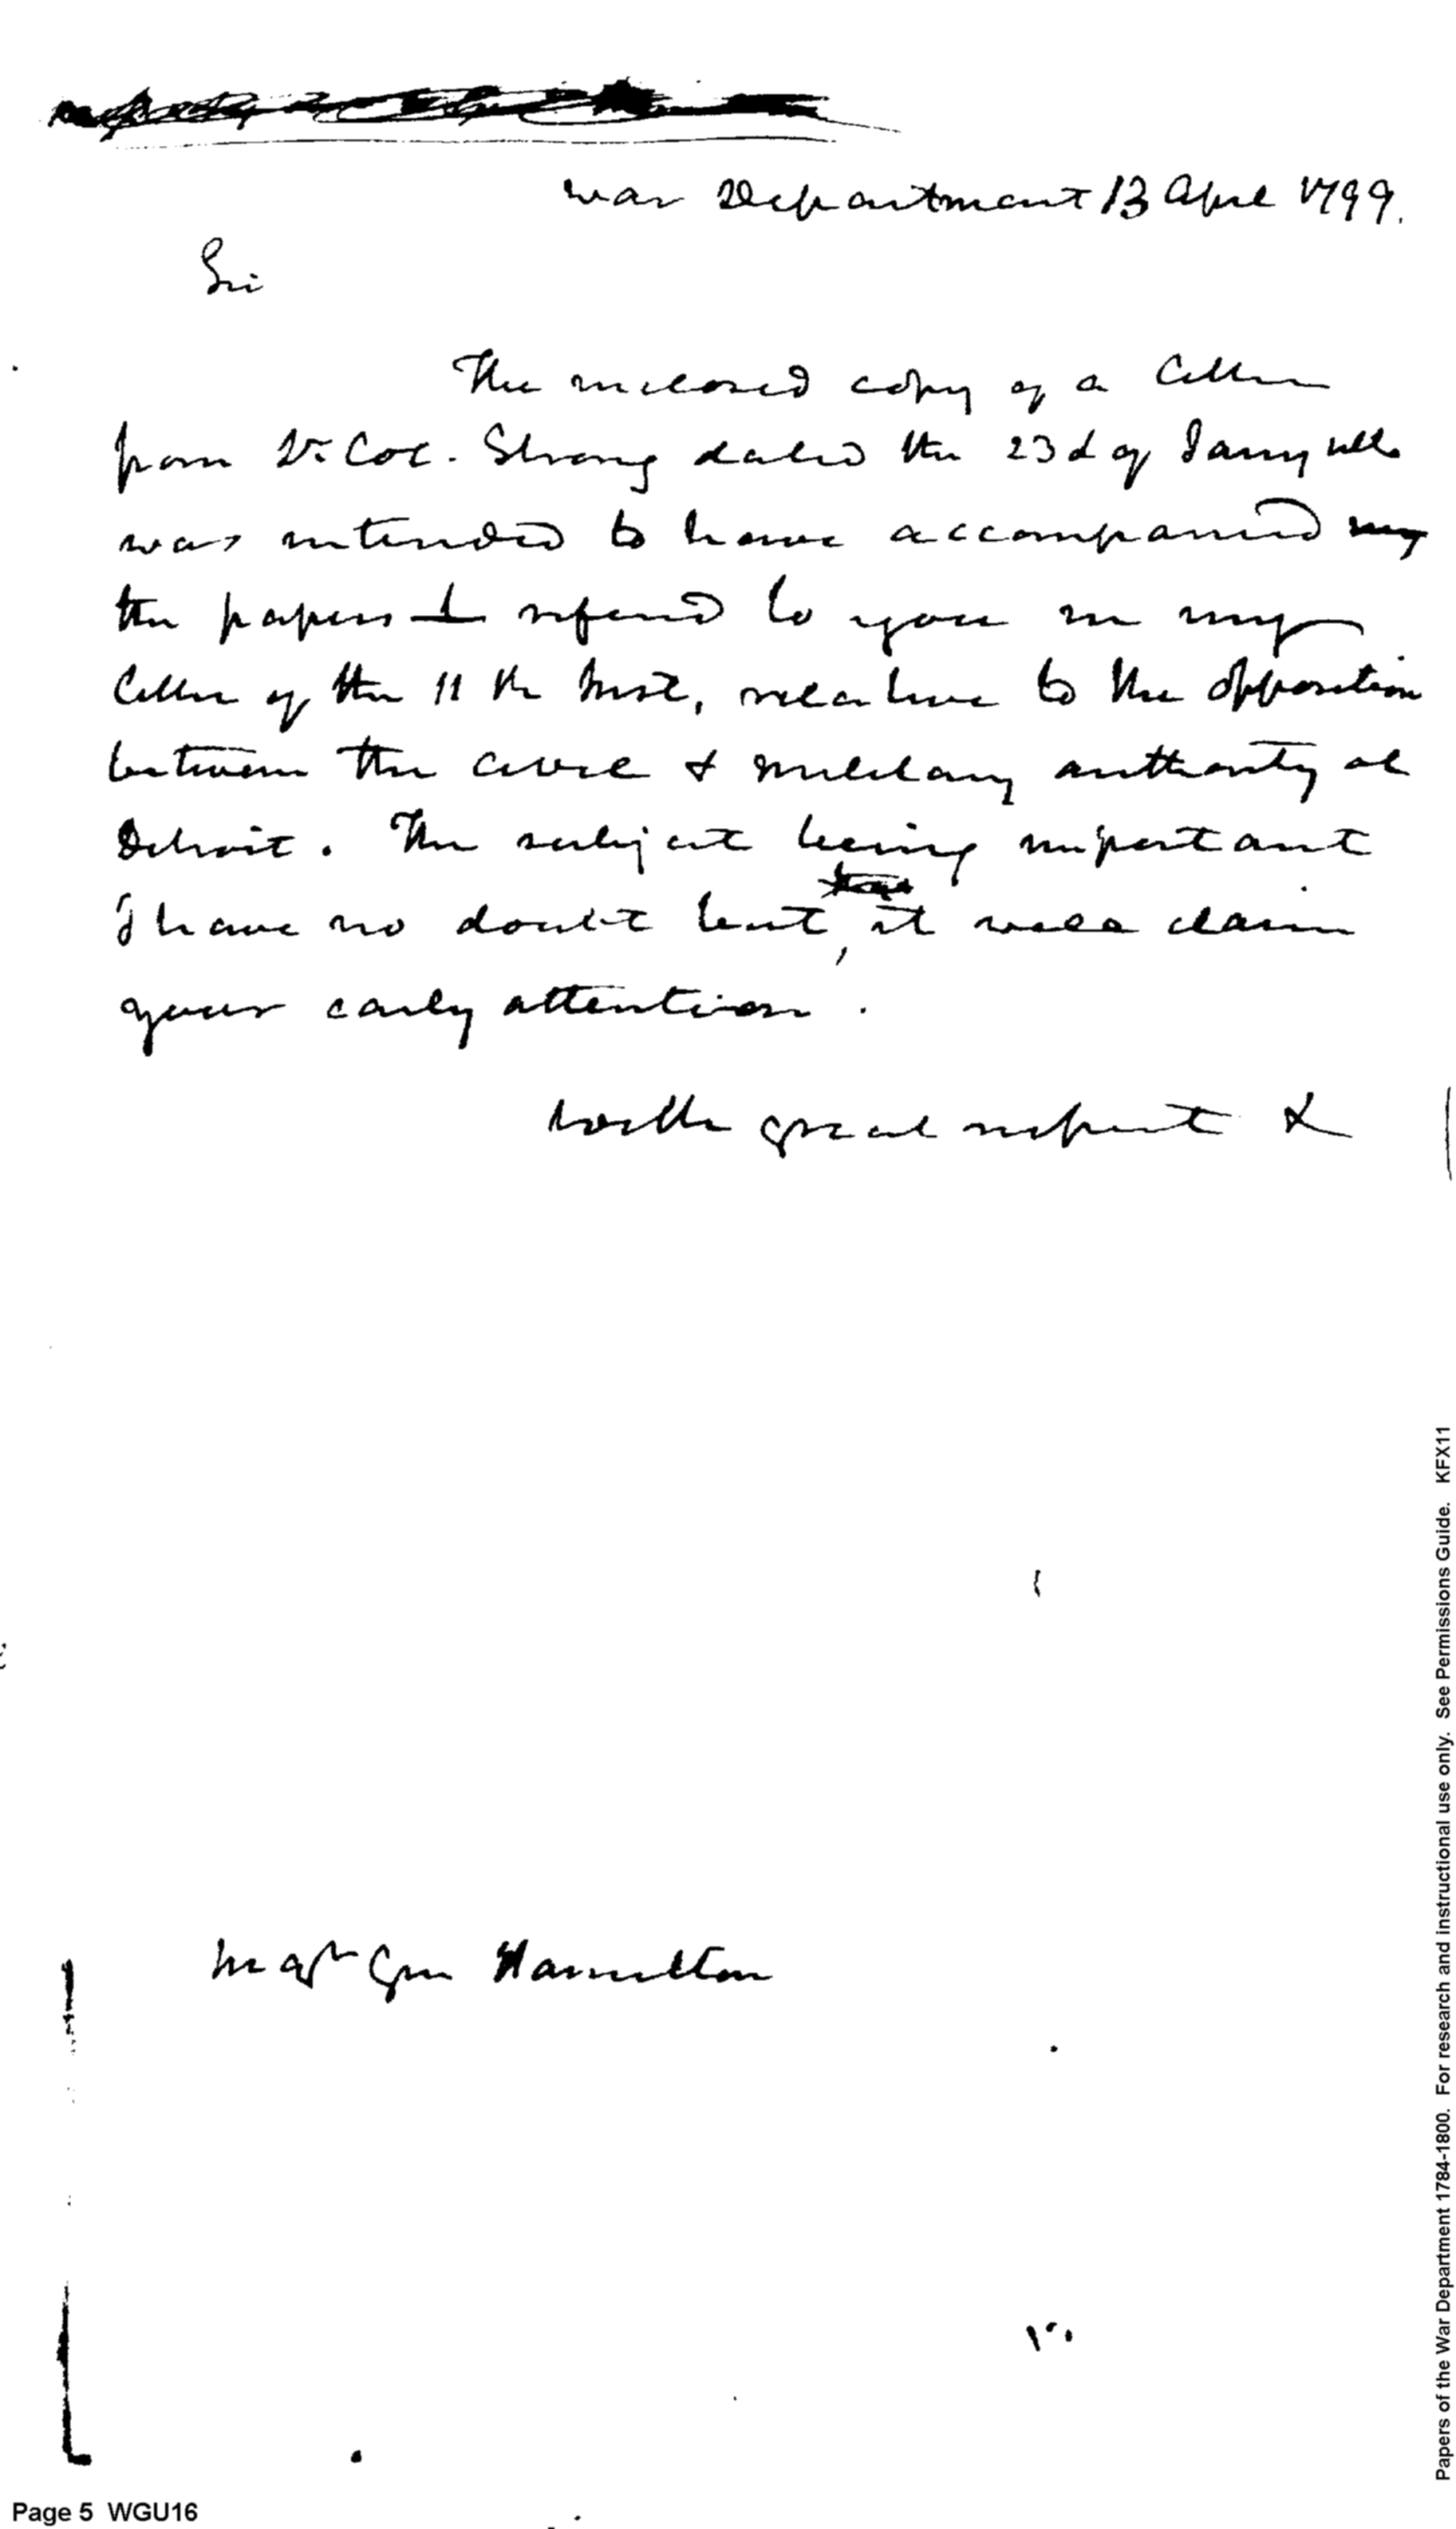 War Department 13 April 1799.
Sir
The inclosed copy of a letter
from Lt. Col. Strong dated the 23d of Jany ullo
was intended to have accompanied my
the papers I referred to you in my
letter of the 11th Inst, relative to the opposition
between the civil & military authority at
Detroit. The subject being important
I have no doubt but, it will claim
your early attention.
with great respect &
Majr Gen Hamilton
Page 5 WGU16
Papers of the War Department 1784-1800. For research and instructional use only. See Permissions Guide. KFX11